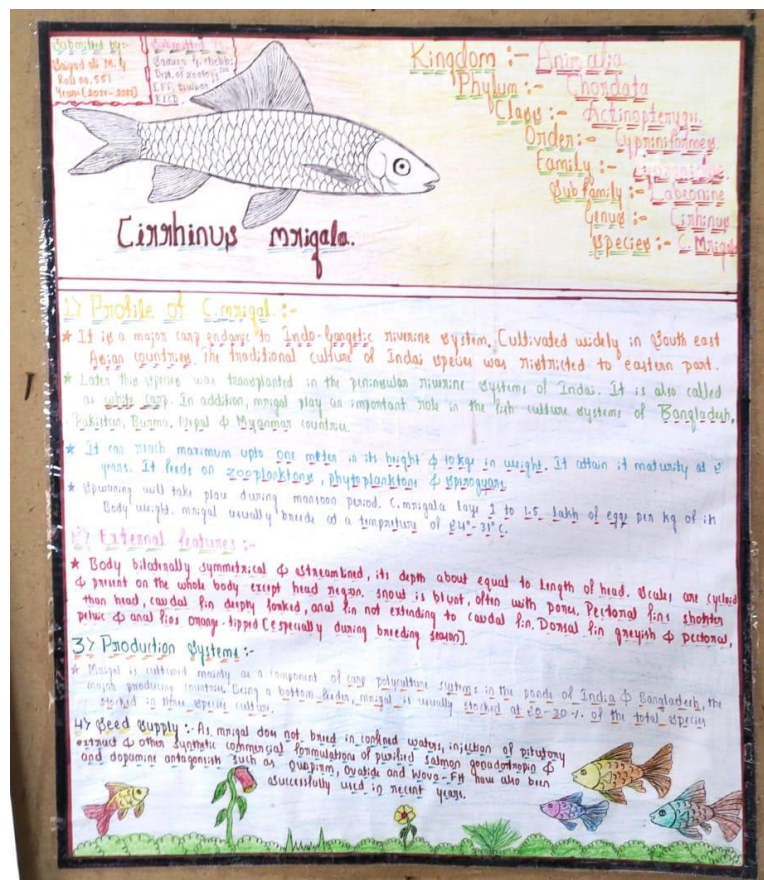 Submitted by:-
Saiyad ali M. G
Roll no. 551
Year:(2020-2021)
Submitted to
Dept. of zoology
Kingdom :- Animalia
Phylum :- Chordata
Class :- Actinopterygii.
Order:- Cypriniformes
Family :-
Sub Family:- Labeonine
Genus :- Cirhinus
Species :- C. Mrigala
Cirrhinus mrigala.
1) Profile of C.mrigal :-
★ It is a major carp endamic to Indo-Gangetic riverine system, Cultivated widely in South east
Asian countries, the traditional culture of Indai species was ristricted to eastern part.
★ Later this species was transplanted in the peninsular riverine systems of Indai. It is also called
as white carp. In addition, mrigal play an important role in the fish culture systems of Bangladesh,
Pakistan, Burma, Nepal & Myanmar countries.
★ It can reach maximum upto one meter in its height & 10kgs in weight. It attain it maturity at 2
years. It feeds on zooplanktons, phytoplanktons & spirogyara
★ Spwaning will take plau during mansoon period. C.mrigala lays 1 to 1.5 lakh of eggs per kg of its
Body weight. mrigal usually breeds at a tempreture of 24°-31°C.
2) External features :-
★ Body bilaterally symmetrical & streamlined, its depth about equal to length of head. Scales are cycloid
& present on the whole body except head region. snout is blunt, often with pores. Pectoral fins shorter
than head, caudal fin deeply forked, anal fin not extending to caudal fin. Dorsal fin greyish & pectoral,
pelvic & anal fins orange-tipped [especially during breeding season].
3) Production Systems :-
★ Mrigal is cultured mainly as a component of carp polyculture systems in the ponds of India & Bangladesh, the
major producing countries. Being a bottom feeder, mrigal is usually stocked at 20-30-/. of the total species
stocked in three species culture.
4) Seed Supply :- As mrigal does not breed in confined waters, injection of pitutory
extract & other synthetic commercial formulations of purified salmon gonadotropin &
and dopamine antagonists such as Ovaprim, Ovatide and Wova-FH have also been
successfully used in recent years.